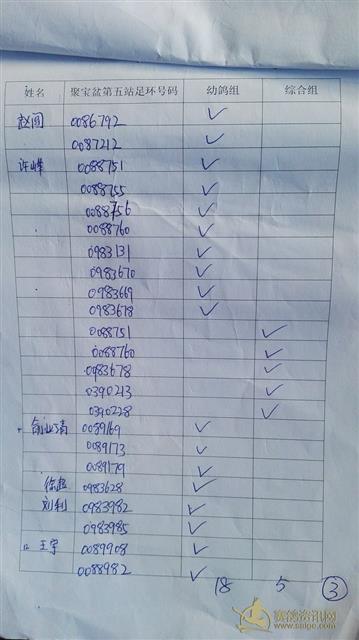 姓名 聚宝盆第五站足环号码 幼鸽组 综合组
赵国 0086792 ✓
0087212 ✓
许峰 0088751 ✓
0088755 ✓
0088756 ✓
0088760 ✓
0983131 ✓
0983670 ✓
0983669 ✓
0983678 ✓
0088751 ✓
0088760 ✓
0983678 ✓
0390213 ✓
0390228 ✓
0089169 ✓
0089173 ✓
0089179 ✓
0983628 ✓
刘利 0983982 ✓
0983985 ✓
王宇 0089908 ✓
0088982 ✓
18 5 ③
赛鸽资讯网
www.saige.com